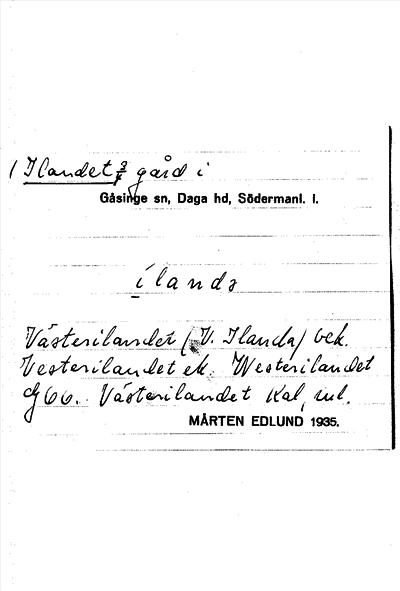 Ilandet 3/4 gård i
Gåsinge sn, Daga hd, Södermanl. l.
ílandə
Västerilandet (V. Ilanda) bek.
Vesterilandet ek. Westerilandet
Gj 66. Västerilandet Kal, ml.
MÅRTEN EDLUND 1935.